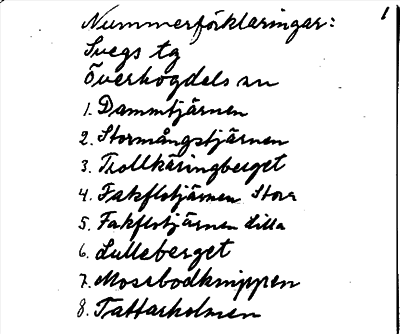 Nummerförklaringar: 1
Svegs tg
Överhogdels sn
1. Dammtjärnen
2. Stormångstjärnen
3. Trollkäringberget
4. Fakflotjärnen Stora
5. Fakflotjärnen Lilla
6. Lulleberget
7. Mossbodknippen
8. Tattarholmen